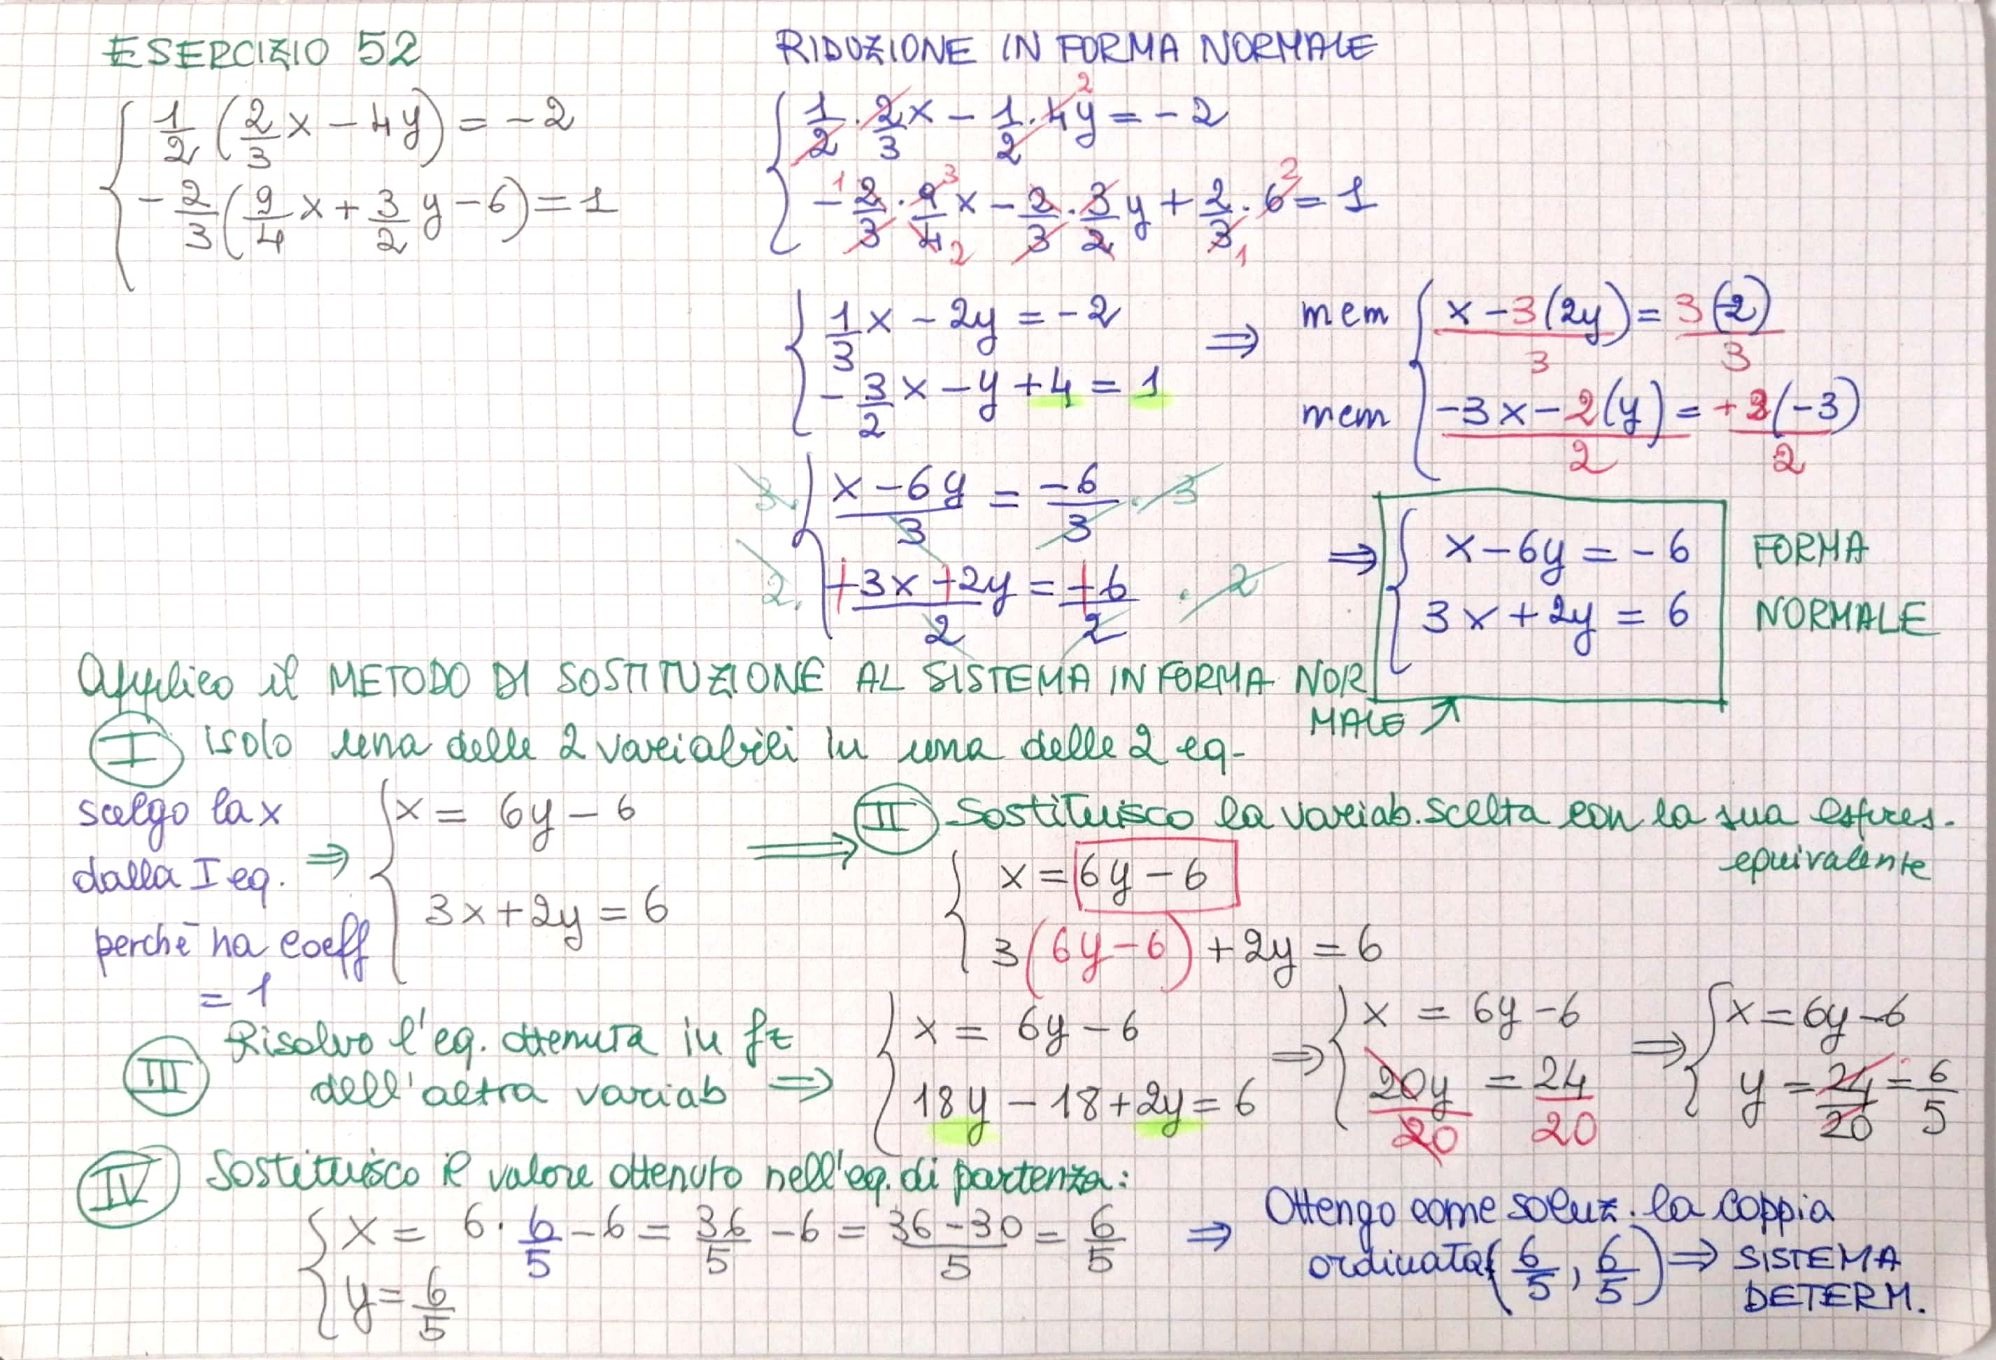 ESERCIZIO 52
1/2 (2/3 x - 4y) = -2
-2/3 (9/4 x + 3/2 y - 6) = 1
RIDUZIONE IN FORMA NORMALE
1/2 · 2/3 x - 1/2 · 4y = -2
2
-2/3 · 9/4 x - 2/3 · 3/2 y + 2/3 · 6 = 1
1 3 2 2 1
1/3 x - 2y = -2
-3/2 x - y + 4 = 1
⇒ mcm (x - 3(2y))/3 = 3(-2)/3
mcm (-3x - 2(y))/2 = +2(-3)/2
3 · (x - 6y)/3 = -6/3 · 3
2 · (+3x + 2y)/2 = +6/2 · 2
⇒ x - 6y = -6
3x + 2y = 6
FORMA
NORMALE
Applico il METODO DI SOSTITUZIONE AL SISTEMA IN FORMA NOR
MALE ↗
I isolo una delle 2 variabili in una delle 2 eq-
scelgo la x
dalla I eq.
perchè ha coeff
= 1
⇒ x = 6y - 6
3x + 2y = 6
⇒ II Sostituisco la variab. scelta con la sua espres.
equivalente
x = 6y - 6
3(6y - 6) + 2y = 6
III Risolvo l'eq. ottenuta in fz
dell'altra variab ⇒
x = 6y - 6
18y - 18 + 2y = 6
⇒ x = 6y - 6
20y/20 = 24/20
⇒ x = 6y - 6
y = 24/20 = 6/5
IV Sostituisco il valore ottenuto nell'eq. di partenza:
x = 6 · 6/5 - 6 = 36/5 - 6 = (36 - 30)/5 = 6/5
y = 6/5
⇒ Ottengo come soluz. la coppia
ordinata (6/5, 6/5) ⇒ SISTEMA
DETERM.